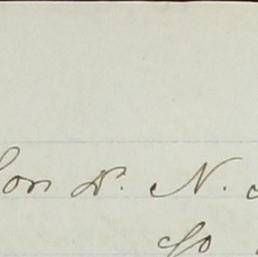 Hon D. N.
Co